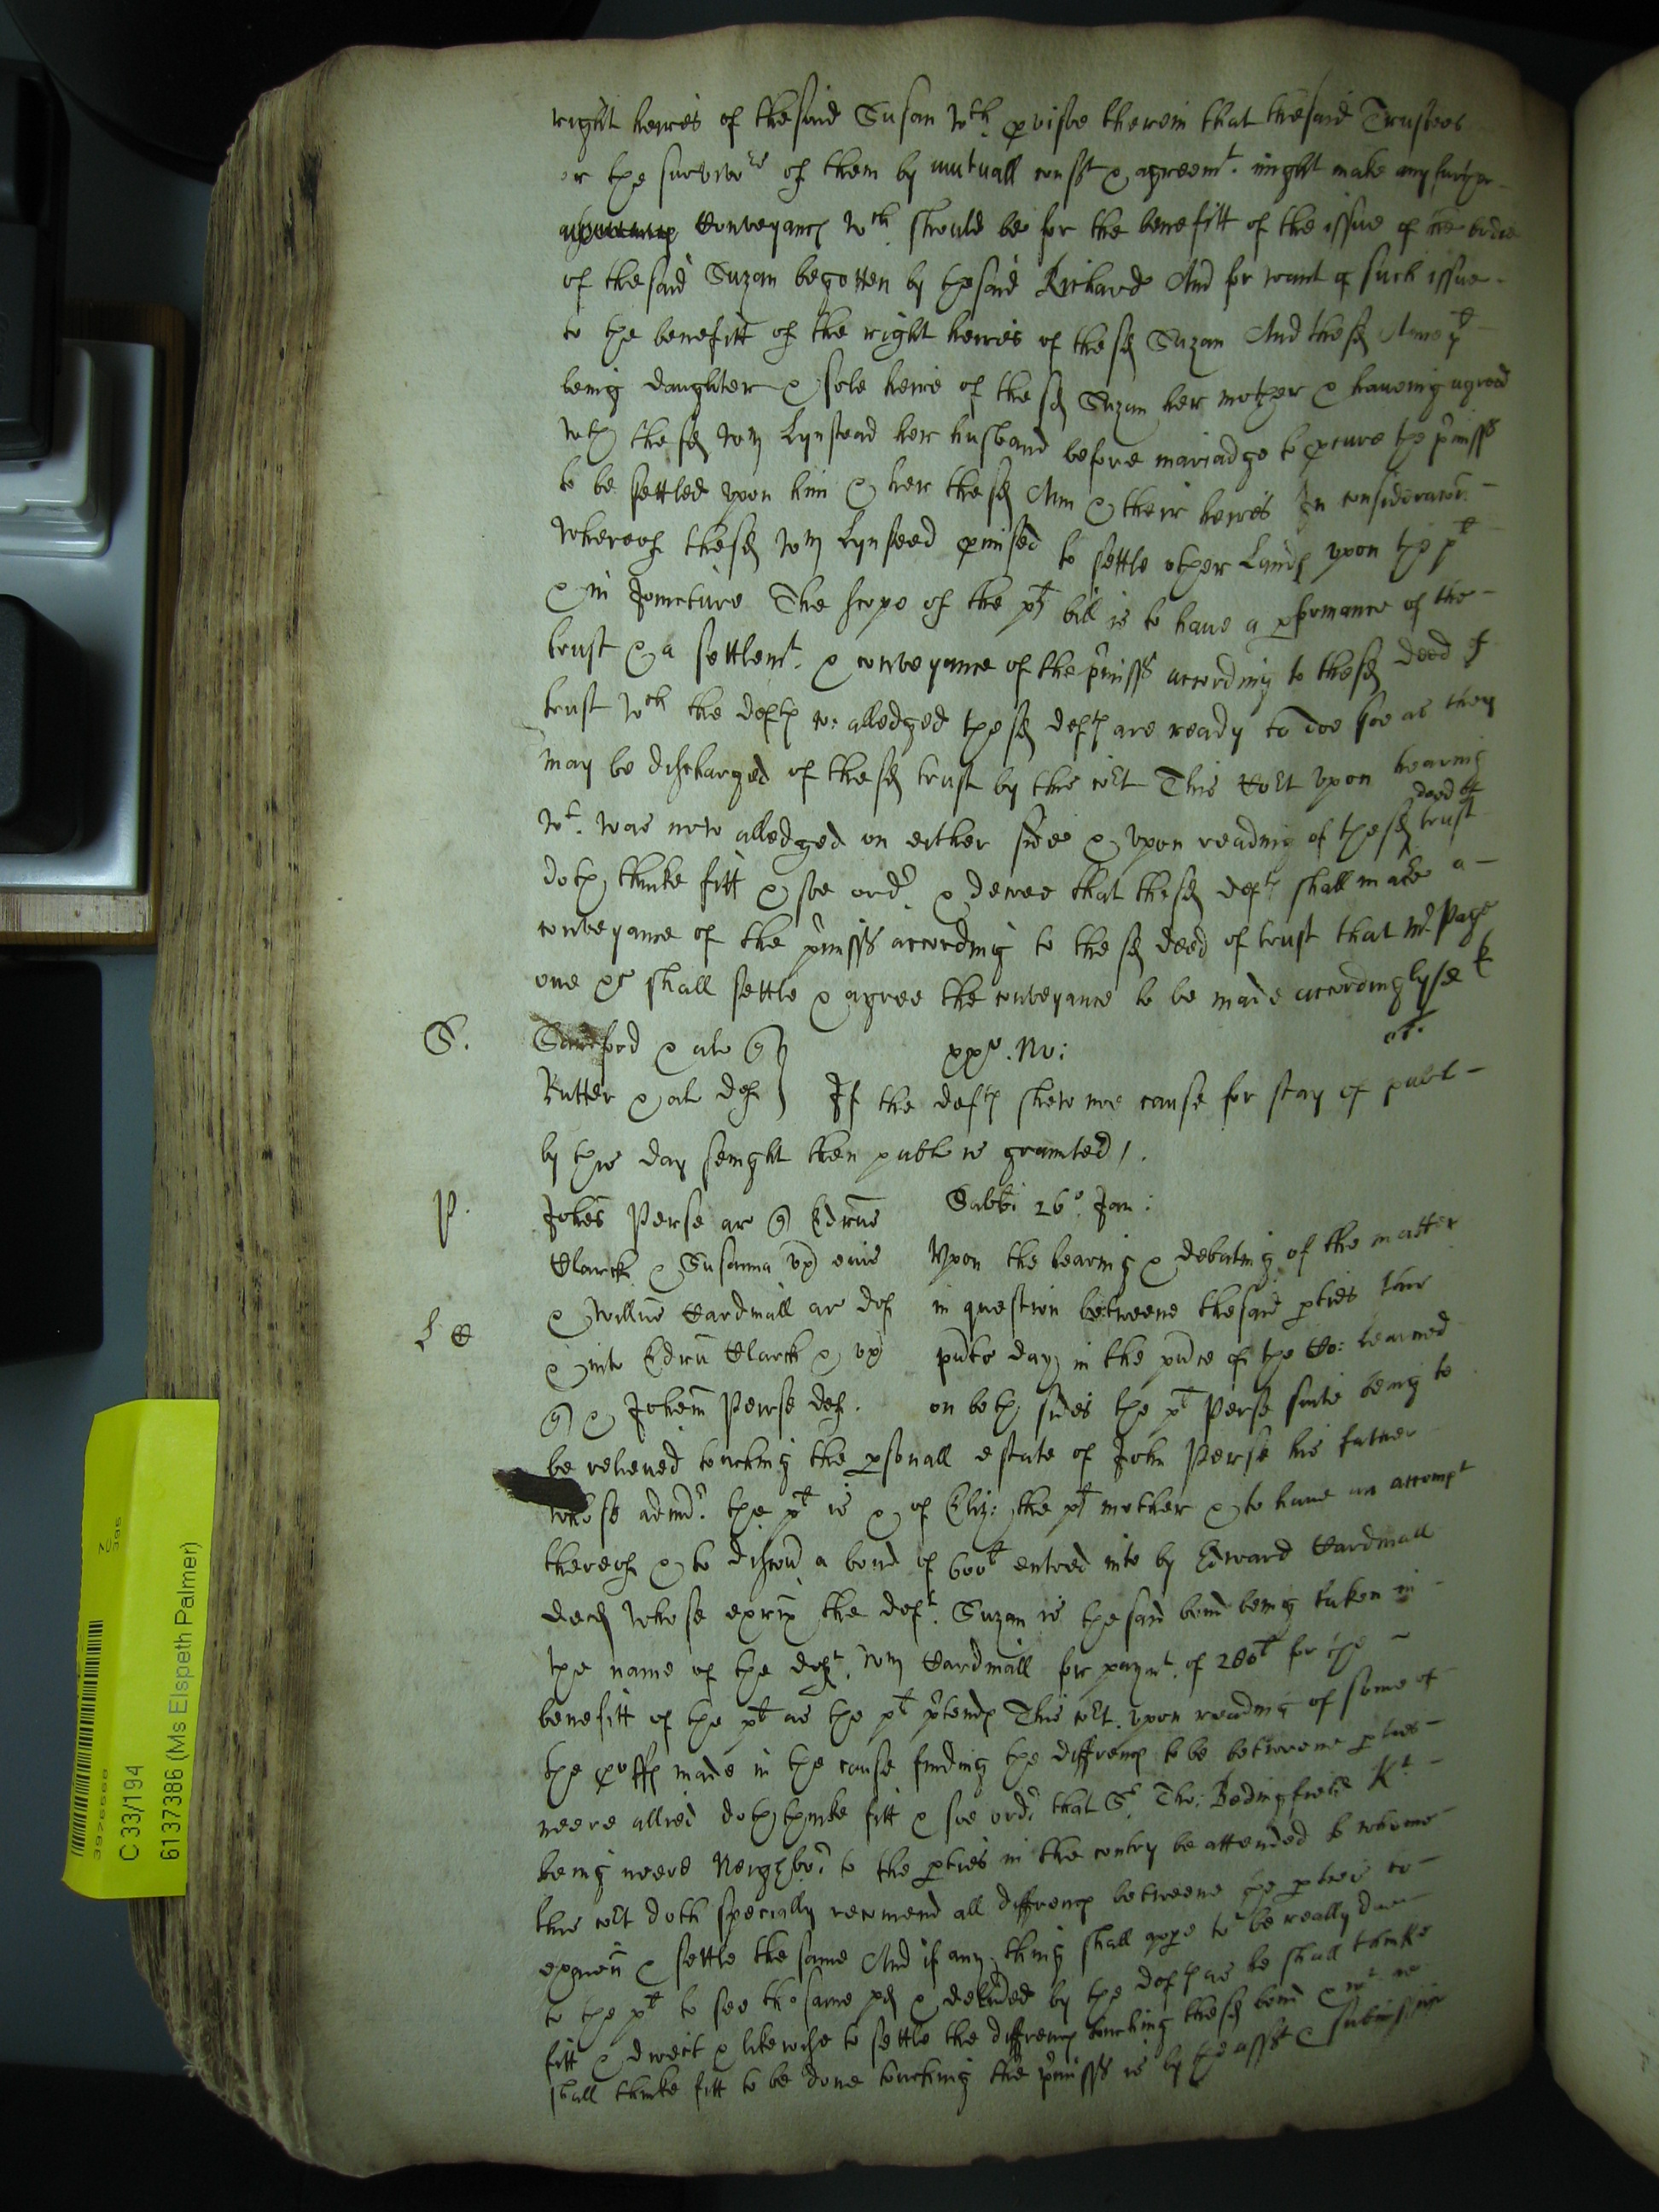 right heires of thesaid Susan wch. pviso therein that thesaid Trustees
or the survivors of them by mutuall consst & agreemt. might make any further
Conveyance wch should be for the benefitt of the issue of the bodie
of thesaid Suzan begotten by thesaid Richard And for want of such issue
to the benefitt of the right heires of the sd Suzan And the sd Anne pt
being daughter & sole heire of the sd Suzan her mother & haueing agreed
wth the sd Wm Lynstead her husband before mariadge to pcure the pmisss
to be settled vpon him & her the sd Ann & their heires In consideracon
whereof thesd Wm Lynsteed pmised to settle other Lands vpon the pt
& in Joincture The scope of the pts bill is to haue a pformance of the
trust & a settlemt. & conveyance of the pmisss according to thesd deed of
trust wch the defts co: alledged the sd defts are ready to doe soe as they
may be discharged of thesd trust by this coLt This CoLt vpon hearing
wt. was now alledged on either side & vpon reading of thesd deed of trust
doth thinke fitt & soe ordr. & decree that thesd defts shall make a
conveyance of the pmisss according to the sd deed of trust that Mr Page
one &c shall settle & agree the conveyance to be made accordingly se k
S.
& al q
xxx. No:
Rutter & al def
If the defts shew noe cause for stay of publ
by this day senight then publ is graunted /.
P.
Johes Perse ar q Edrus
Sabbi 26o. Jan:
Clarck & Susanna vx eius
Vpon the hearing & debating of the matter
& Willus Hardmall ar def
in question betweene thesaid pties
L C
& inte Edru Clarck & vx
pnte day in the pnce of the Co: learned
q & Johem Perse def.
on both sides the pt Perse suite being to
be releived touching the psonall estate of John Perse his father
whose admr. the pt is & of Eliz: the pts mother & to haue an accompt
thereof & to discou a bond of 600l entred into by Edward Hardmall
decd whose exrix the deft. Suzan is the said bond being taken in
the name of the deft. Wm Hardmall for paymt. of 280l for the
benefitt of the pt as the pt ptends This coLt. vpon reading of some of
the proffs made in the cause finding the diffrencs to be betweene pties
neere allied doth thinke fitt & soe ordr that Sr. Tho: Bedingfield Kt.
being neere Neighbor to the pties in the contry be attended to whome
this coLt doth specially recomend all diffrencs betweene the pties to
exmen & settle the same And if any thing shall appe to be really due
to the pt to see the same pd & by the defts as he shall thinke
fitt & direct & likewise to settle the diffrencs touching thesd bond & wt. he
shall thinke fitt to be done touching the pmisss is by the assst & submission
C 33/194
6137386 (Ms Elspeth Palmer)